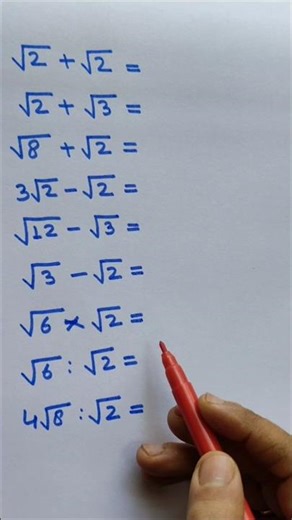 √2 + √2 =
√2 + √3 =
√8 + √2 =
3√2 - √2 =
√12 - √3 =
√3 - √2 =
√6 × √2 =
√6 : √2 =
4√8 : √2 =